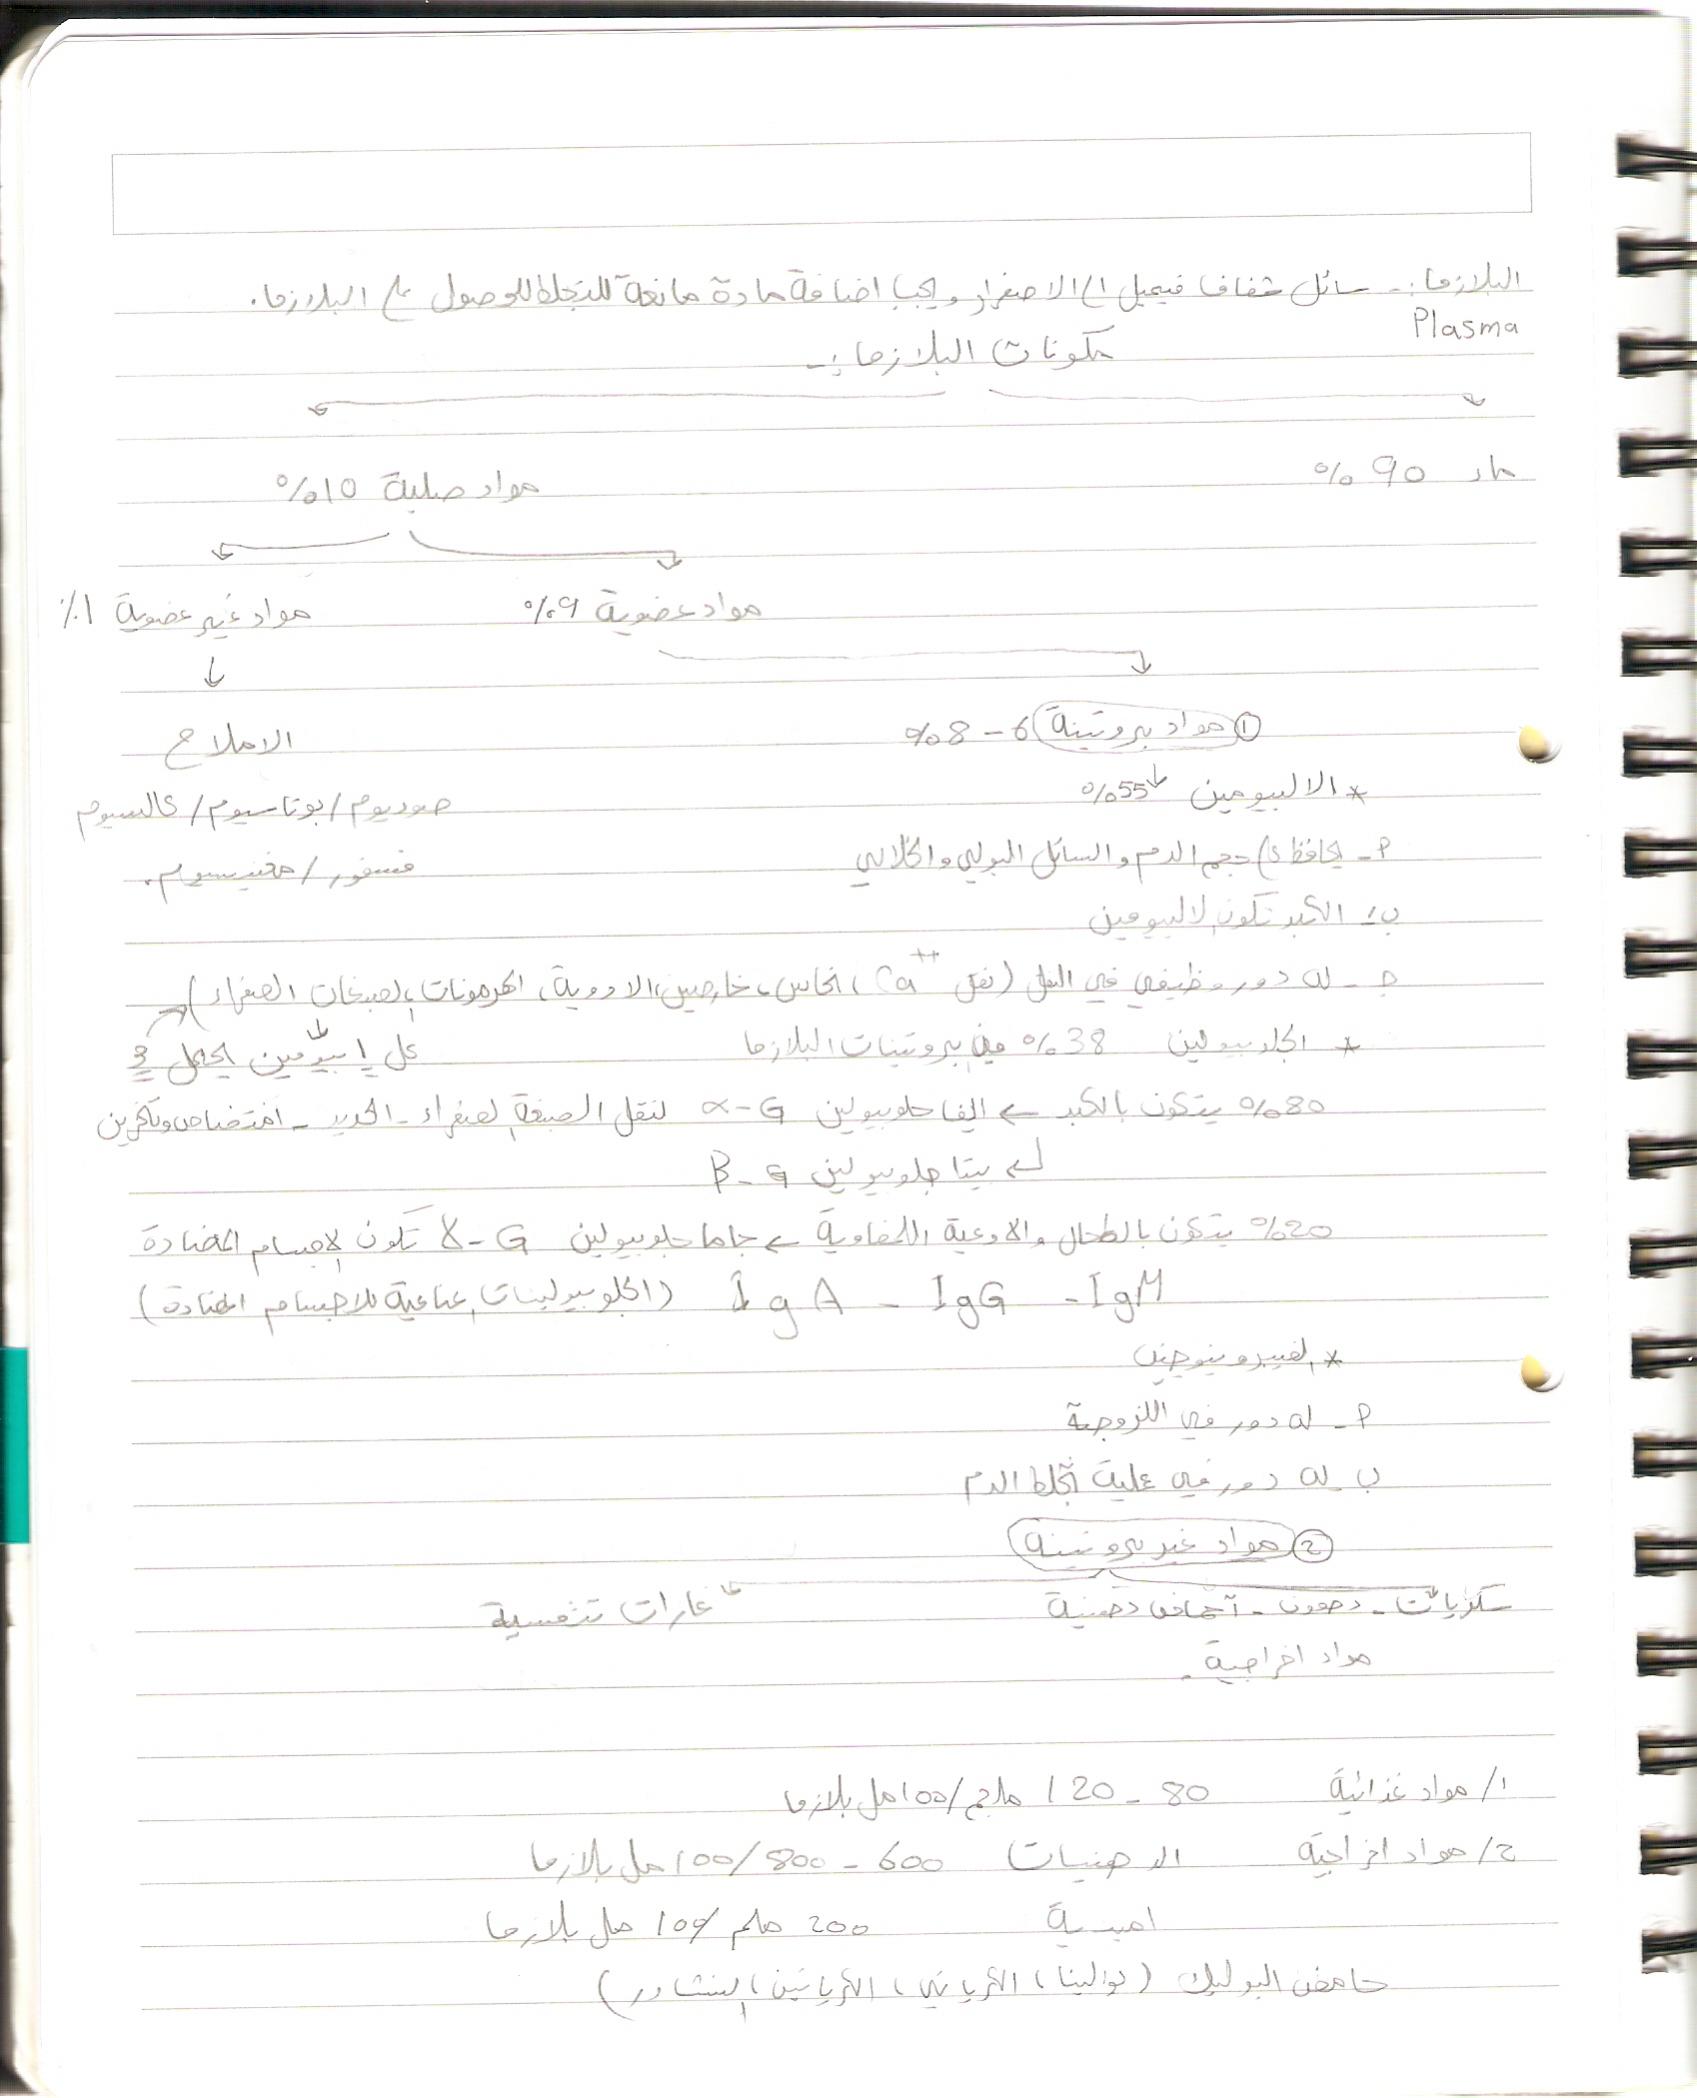 البلازما :- سائل شفاف فيميل الى الاصفرار ويجب اضافة مادة مانعة للتجلط للحصول على البلازما.
Plasma
مكونات البلازما :-
ماء 90 % مواد صلبة 10%
مواد عضوية 9% مواد غير عضوية 1%
① مواد بروتينة 6 - 8% الاملاح
* الالبيومين 55% صوديوم / بوتاسيوم / كالسيوم
أ- يحافظ على حجم الدم والسائل البولي والخلالي فسفور / مغنيسيوم.
ب- الكبد تكون الالبيومين
جـ - له دور وظيفي في النقل (نقل Ca++ ، نحاس، خارصين، الادوية، الهرمونات، الصبغات الصفراء)
* الجلوبيولين 38% من بروتينات البلازما كل 1 البيومين يحمل 3
80% يتكون بالكبد ← الفا جلوبيولين α-G لنقل الصبغة الصفراء - الحديد - امتصاص وتخزين
بيتا جلوبيولين β-G
20% يتكون بالطحال والاوعية اللمفاوية ← جاما جلوبيولين γ-G تكون الاجسام المضادة
IgA - IgG - IgM (الجلوبيولينات مناعية للاجسام المضادة)
* الفيبرونيوجين
أ- له دور في اللزوجة
ب- له دور في عملية تجلط الدم
② مواد غير بروتينة
سكريات - دهون - أحماض دهنية غازات تنفسية
مواد اخراجية.
1/ مواد غذائية 80 - 120 ملجم/100مل بلازما
2/ مواد اخراجية الدهنيات 600 - 800/100 مل بلازما
200 ملم /100 مل بلازما
حامض البوليك (بولينا، الكرياتين،